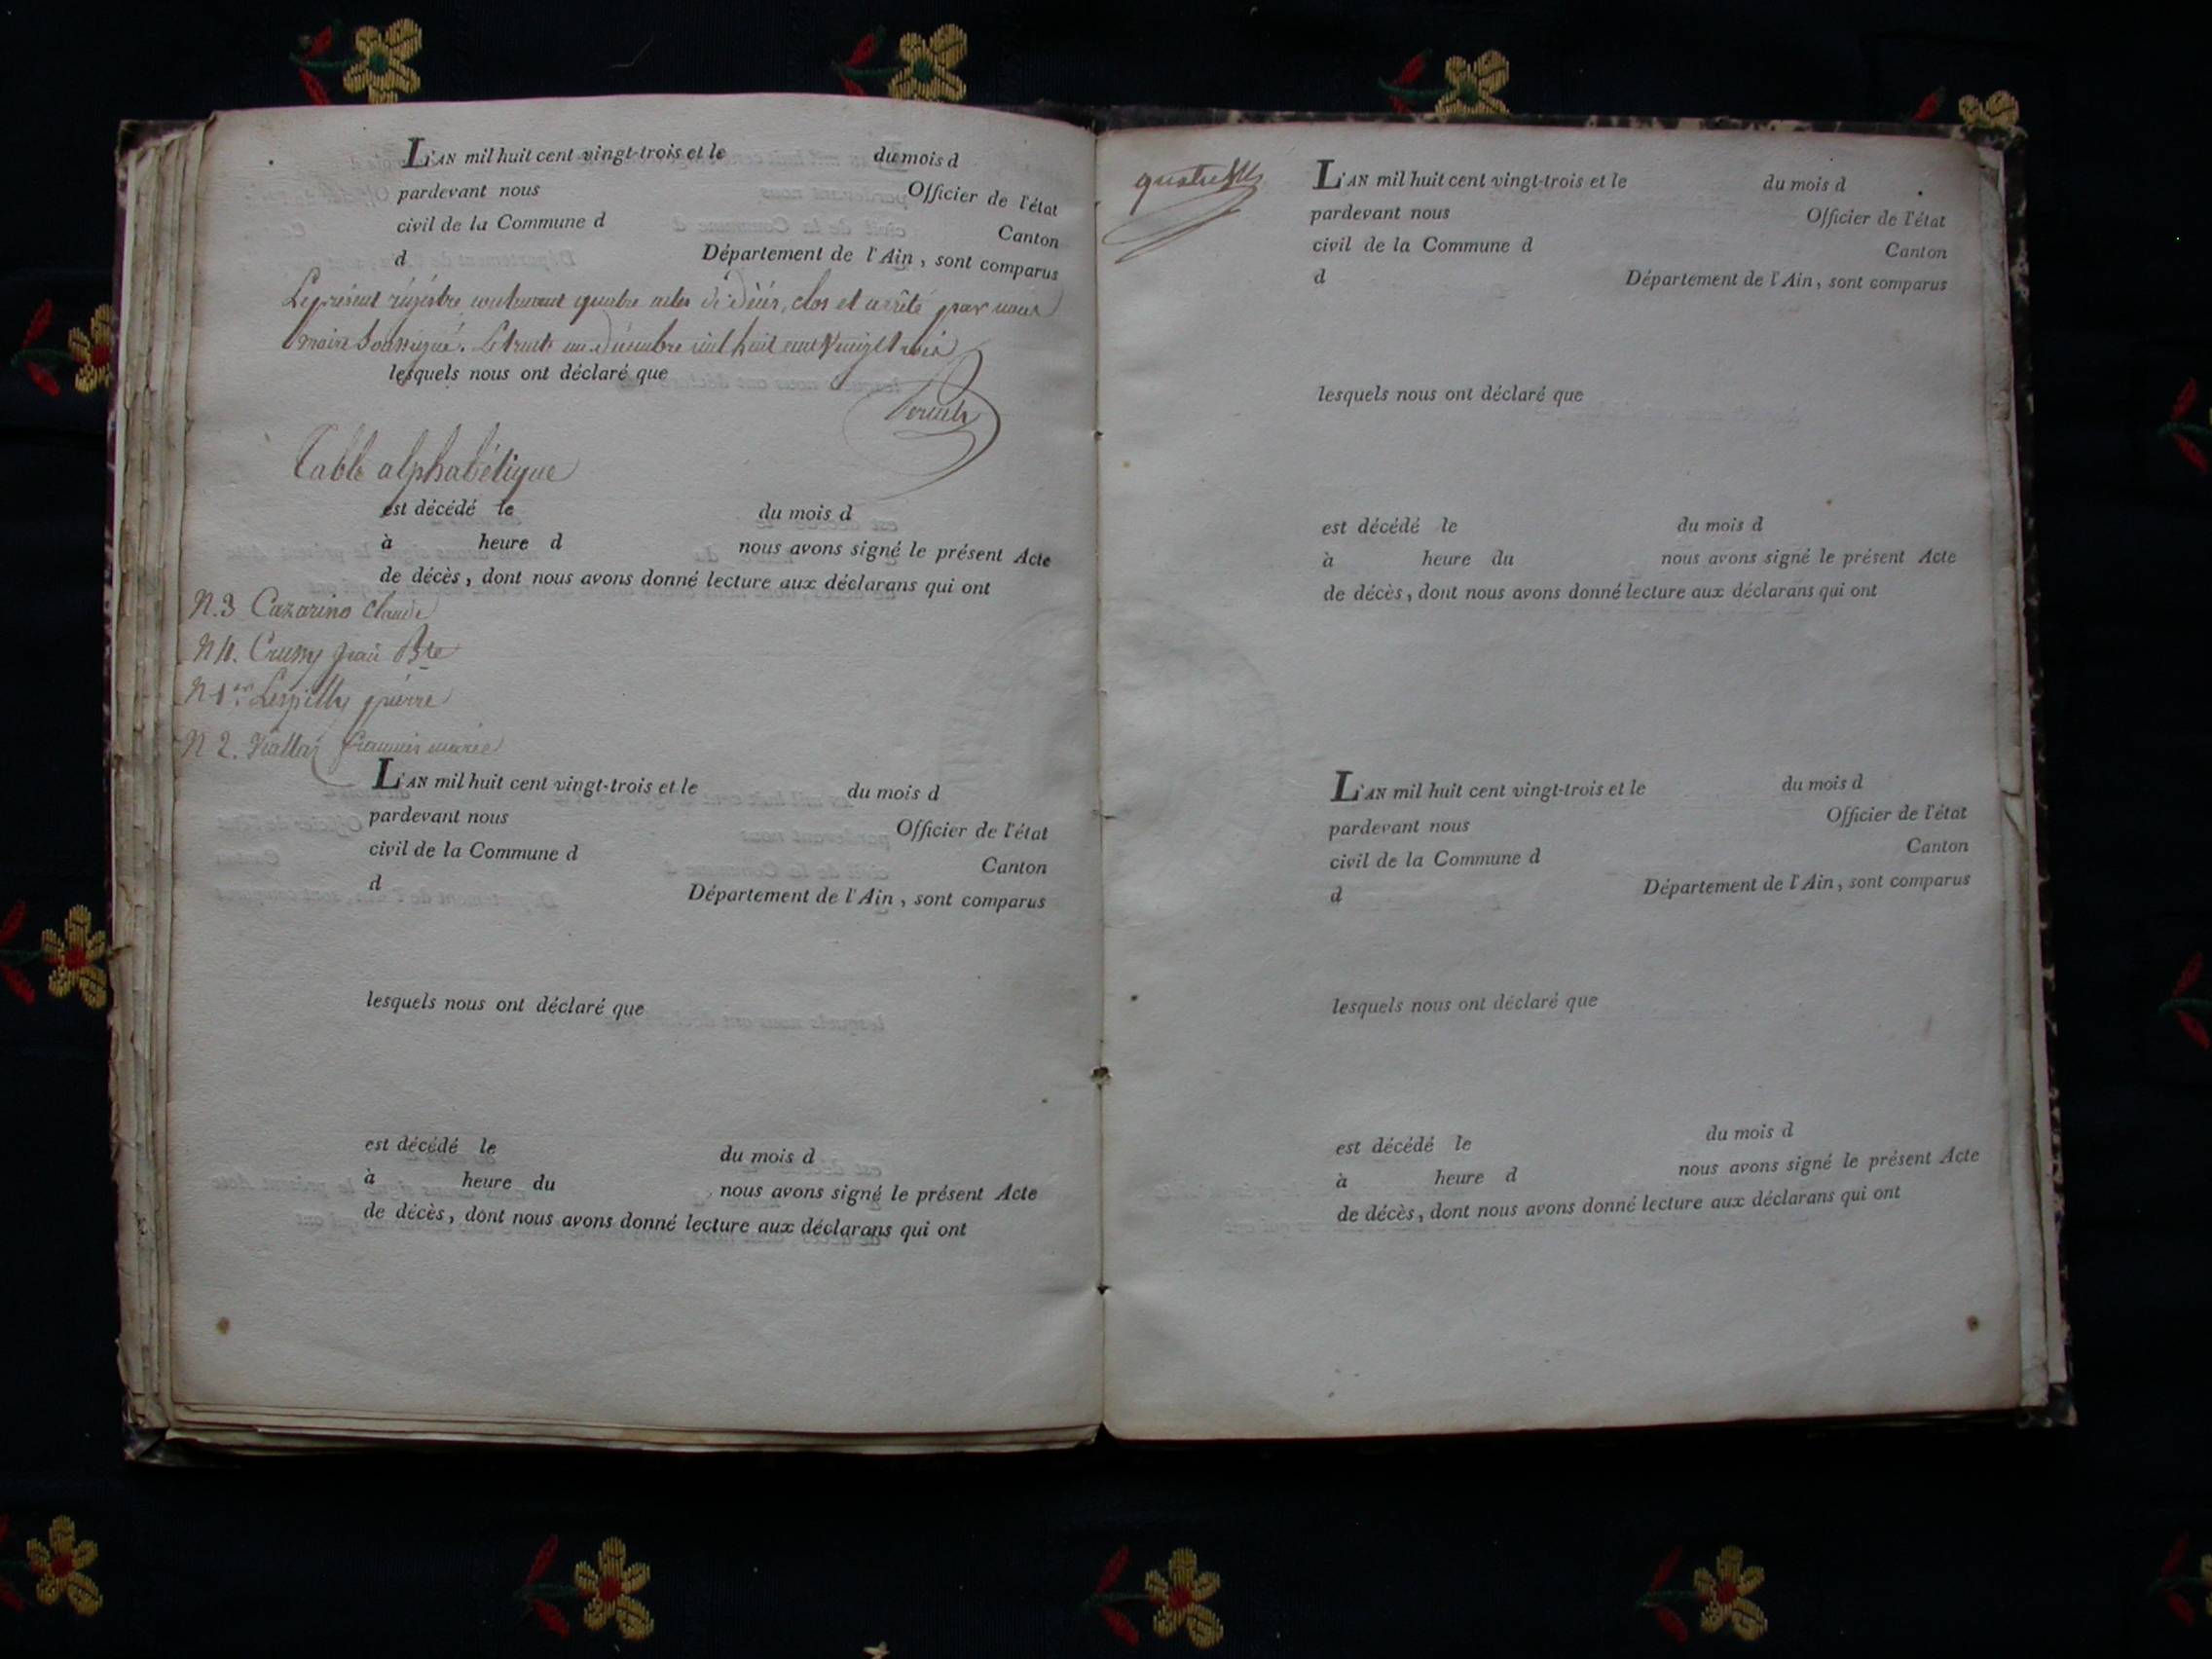 L'AN mil huit cent vingt-trois et le du mois d
pardevant nous Officier de l'état
civil de la Commune d Canton
d Département de l'Ain, sont comparus
Le présent régistre contenant quatre actes de décès, clos et arrêté par nous
maire soussigné. Le trente un décembre mil huit cent vingt trois
lesquels nous ont déclaré que
Table alphabétique
est décédé le du mois d
à heure d nous avons signé le présent Acte
de décès, dont nous avons donné lecture aux déclarans qui ont
N.3 Cazarino Claude
N 4. jean Bte
N 1er pierre
N 2. marie
L'AN mil huit cent vingt-trois et le du mois d
pardevant nous Officier de l'état
civil de la Commune d Canton
d Département de l'Ain, sont comparus
lesquels nous ont déclaré que
est décédé le du mois d
à heure du nous avons signé le présent Acte
de décès, dont nous avons donné lecture aux déclarans qui ont
L'AN mil huit cent vingt-trois et le du mois d
pardevant nous Officier de l'état
civil de la Commune d Canton
d Département de l'Ain, sont comparus
lesquels nous ont déclaré que
est décédé le du mois d
à heure du nous avons signé le présent Acte
de décès, dont nous avons donné lecture aux déclarans qui ont
L'AN mil huit cent vingt-trois et le du mois d
pardevant nous Officier de l'état
civil de la Commune d Canton
d Département de l'Ain, sont comparus
lesquels nous ont déclaré que
est décédé le du mois d
à heure d nous avons signé le présent Acte
de décès, dont nous avons donné lecture aux déclarans qui ont